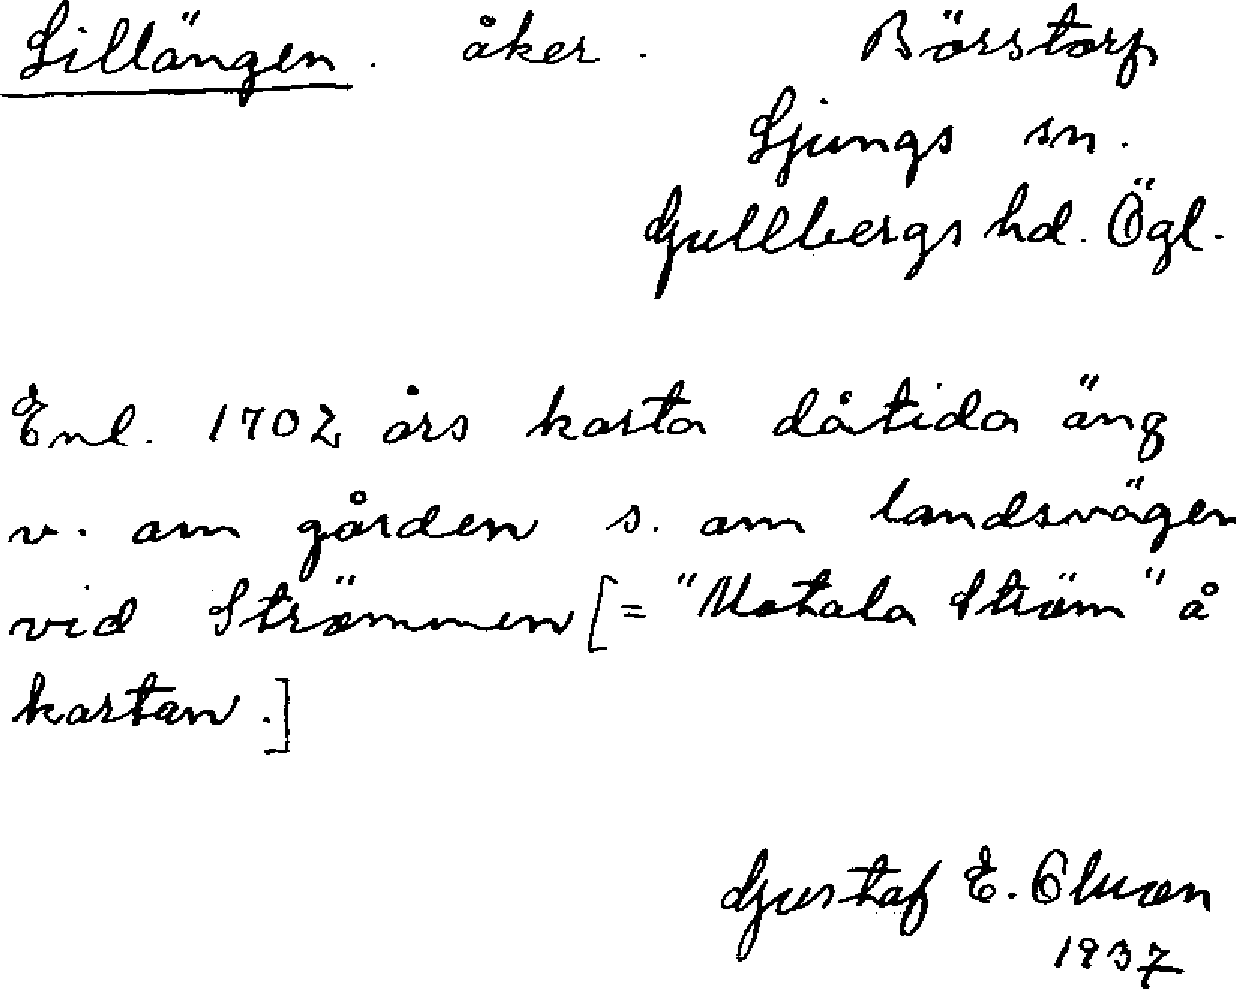 Lillängen. åker. Börstorp
Ljungs sn.
Gullbergs hd. Ögl.
Enl. 1702 års karta dåtida äng
v. om gården s. om landsvägen
vid Strömmen [= "Motala Ström" å
kartan.]
Gustaf E. Olsson
1937